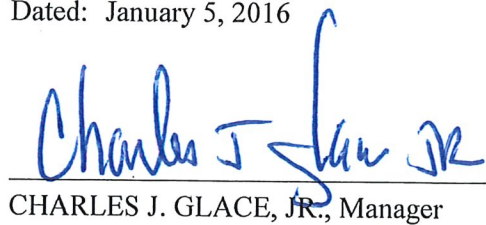 Dated: January 5, 2016
Charles J Glace JR
CHARLES J. GLACE, JR., Manager